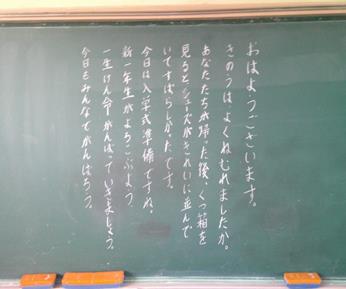 おはようございます。
きのうは、よくねむれましたか。
あなたたちが帰った後、くつ箱を
見るとシューズがきれいに並んで
いてすばらしかったです。
今日は入学式準備ですね。
新一年生がよろこぶよう
一生けん命がんばっていきましょう。
今日もみんなでがんばろう。